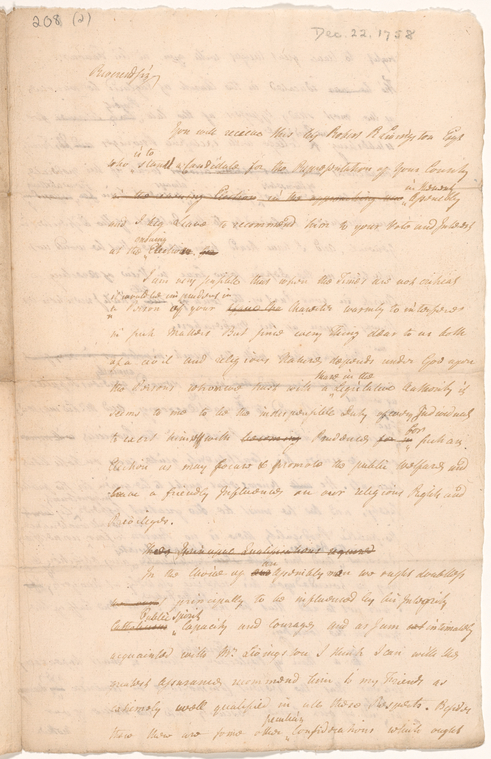 208 (2)
Dec. 22, 1758
Reverend Sir
You will receive this by Robert R Livingston Esqr
who is to stand a Candidate for the Representation of your County
in the ensuing Election in the approaching new in General Assembly
and I beg Leave to recommend him to your Vote and Interest
at the ensuing Election
I am very sensible that when the Times are not critical
it would be imprudent in
a Person of your Character warmly to interfere
in such Matters But since every thing dear to us both
of a civil and religious Nature depends under God upon
the Persons whom we trust with a share in the Legislative Authority it
seems to me to be the indispensible Duty of every Individual
to exert himself with Prudence for such an
Election as may secure & promote the public Welfare and
have a friendly Influence on our religious Rights and
Priviledges.
The Principal Qualifications required
In the Choice of Assembly men we ought doubtless
principally to be influenced by his Integrity
Public Spirit
Capacity and Courage and as I am not intimately
acquainted with Mr. Livingston I think I can with the
utmost Assurance recommend him to my Friends as
extremely well qualified in all these Respects. Besides
these there are some other peculiar Considerations which ought